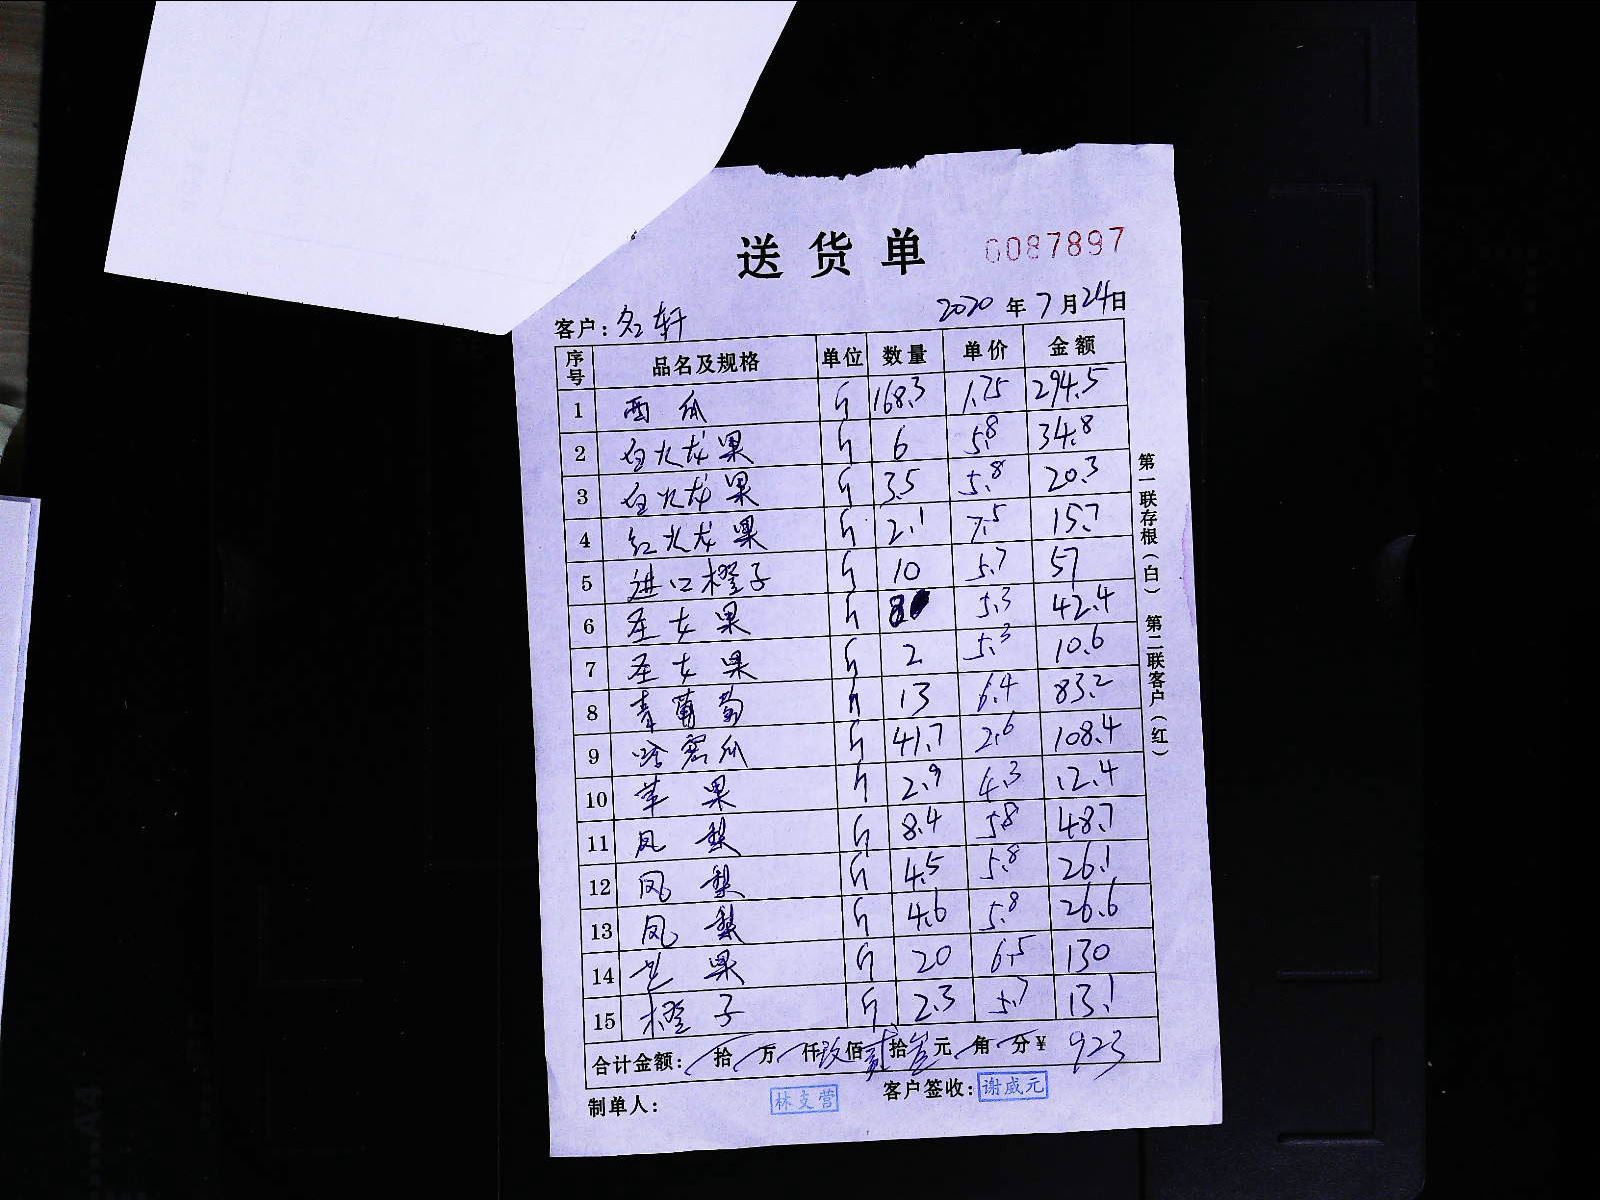 送货单 0087897
客户：名轩 2020年7月24日
序号 品名及规格 单位 数量 单价 金额
1 西瓜 斤 168.3 1.75 294.5
2 白火龙果 斤 6 5.8 34.8
3 白火龙果 斤 3.5 5.8 20.3
4 红火龙果 斤 2.1 7.5 15.7
5 进口橙子 斤 10 5.7 57
6 圣女果 斤 8 5.3 42.4
7 圣女果 斤 2 5.3 10.6
8 青葡萄 斤 13 6.4 83.2
9 哈密瓜 斤 41.7 2.6 108.4
10 苹果 斤 2.9 4.3 12.4
11 凤梨 斤 8.4 5.8 48.7
12 凤梨 斤 4.5 5.8 26.1
13 凤梨 斤 4.6 5.8 26.6
14 芒果 斤 20 6.5 130
15 橙子 斤 2.3 5.7 13.1
合计金额： 拾 万 仟玖佰贰拾叁元 角 分￥ 923
制单人： 林支营 客户签收：谢威元
第一联存根（白） 第二联客户（红）